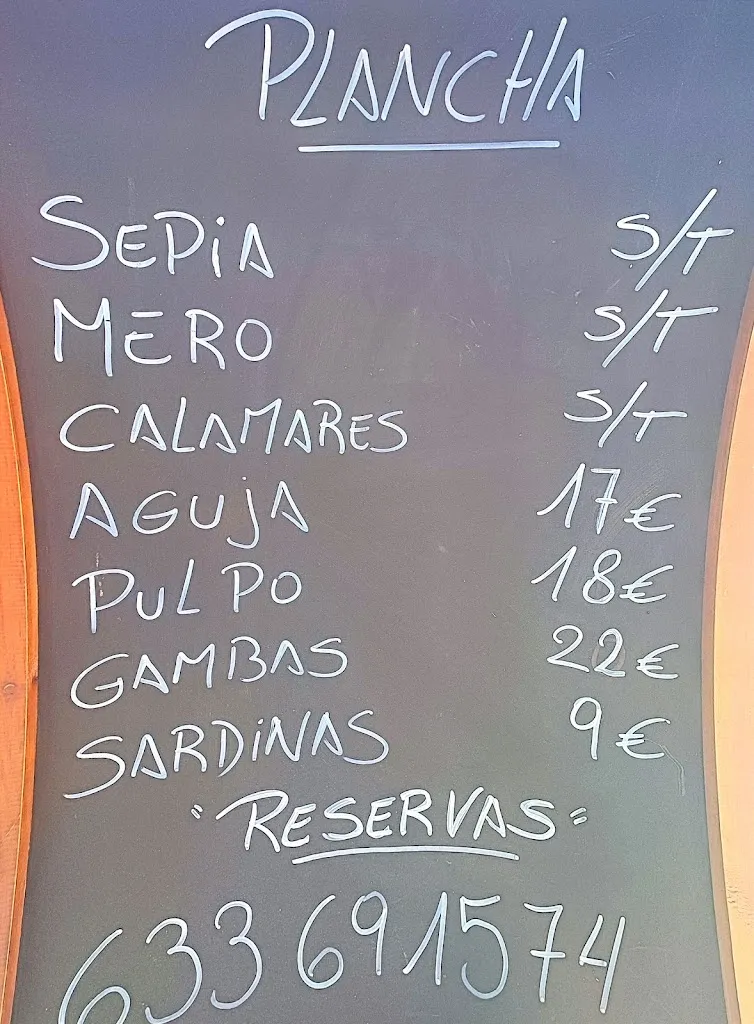 PLANCHA
SEPiA S/T
MERO S/T
CALAMARES S/T
AGUjA 17€
PULPO 18€
GAMBAS 22€
SARDiNAS 9€
"RESERVAS"
633 691574